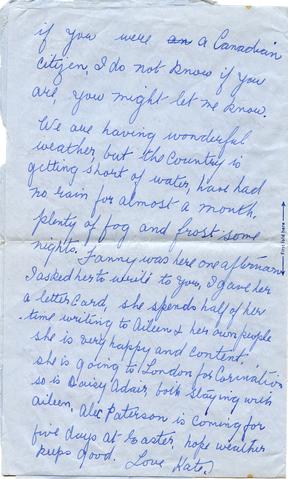 if you were an a Canadian
citizen, I do not know if you
are, you might let me know.
We are having wonderful
weather, but the Country is
getting short of water, have had
no rain for almost a month,
plenty of fog and frost some
nights. Fanny was here one afternoon
I asked her to write to you, I gave her
a letter card, she spends half of her
time writing to Aileen & her own people
she is very happy and content.
she is going to London for Corination
so is Daisy Adair, both staying with
aileen, Alec Paterson is coming for
five days at Easter, hope weather
keeps good. Love Kate.
First fold here